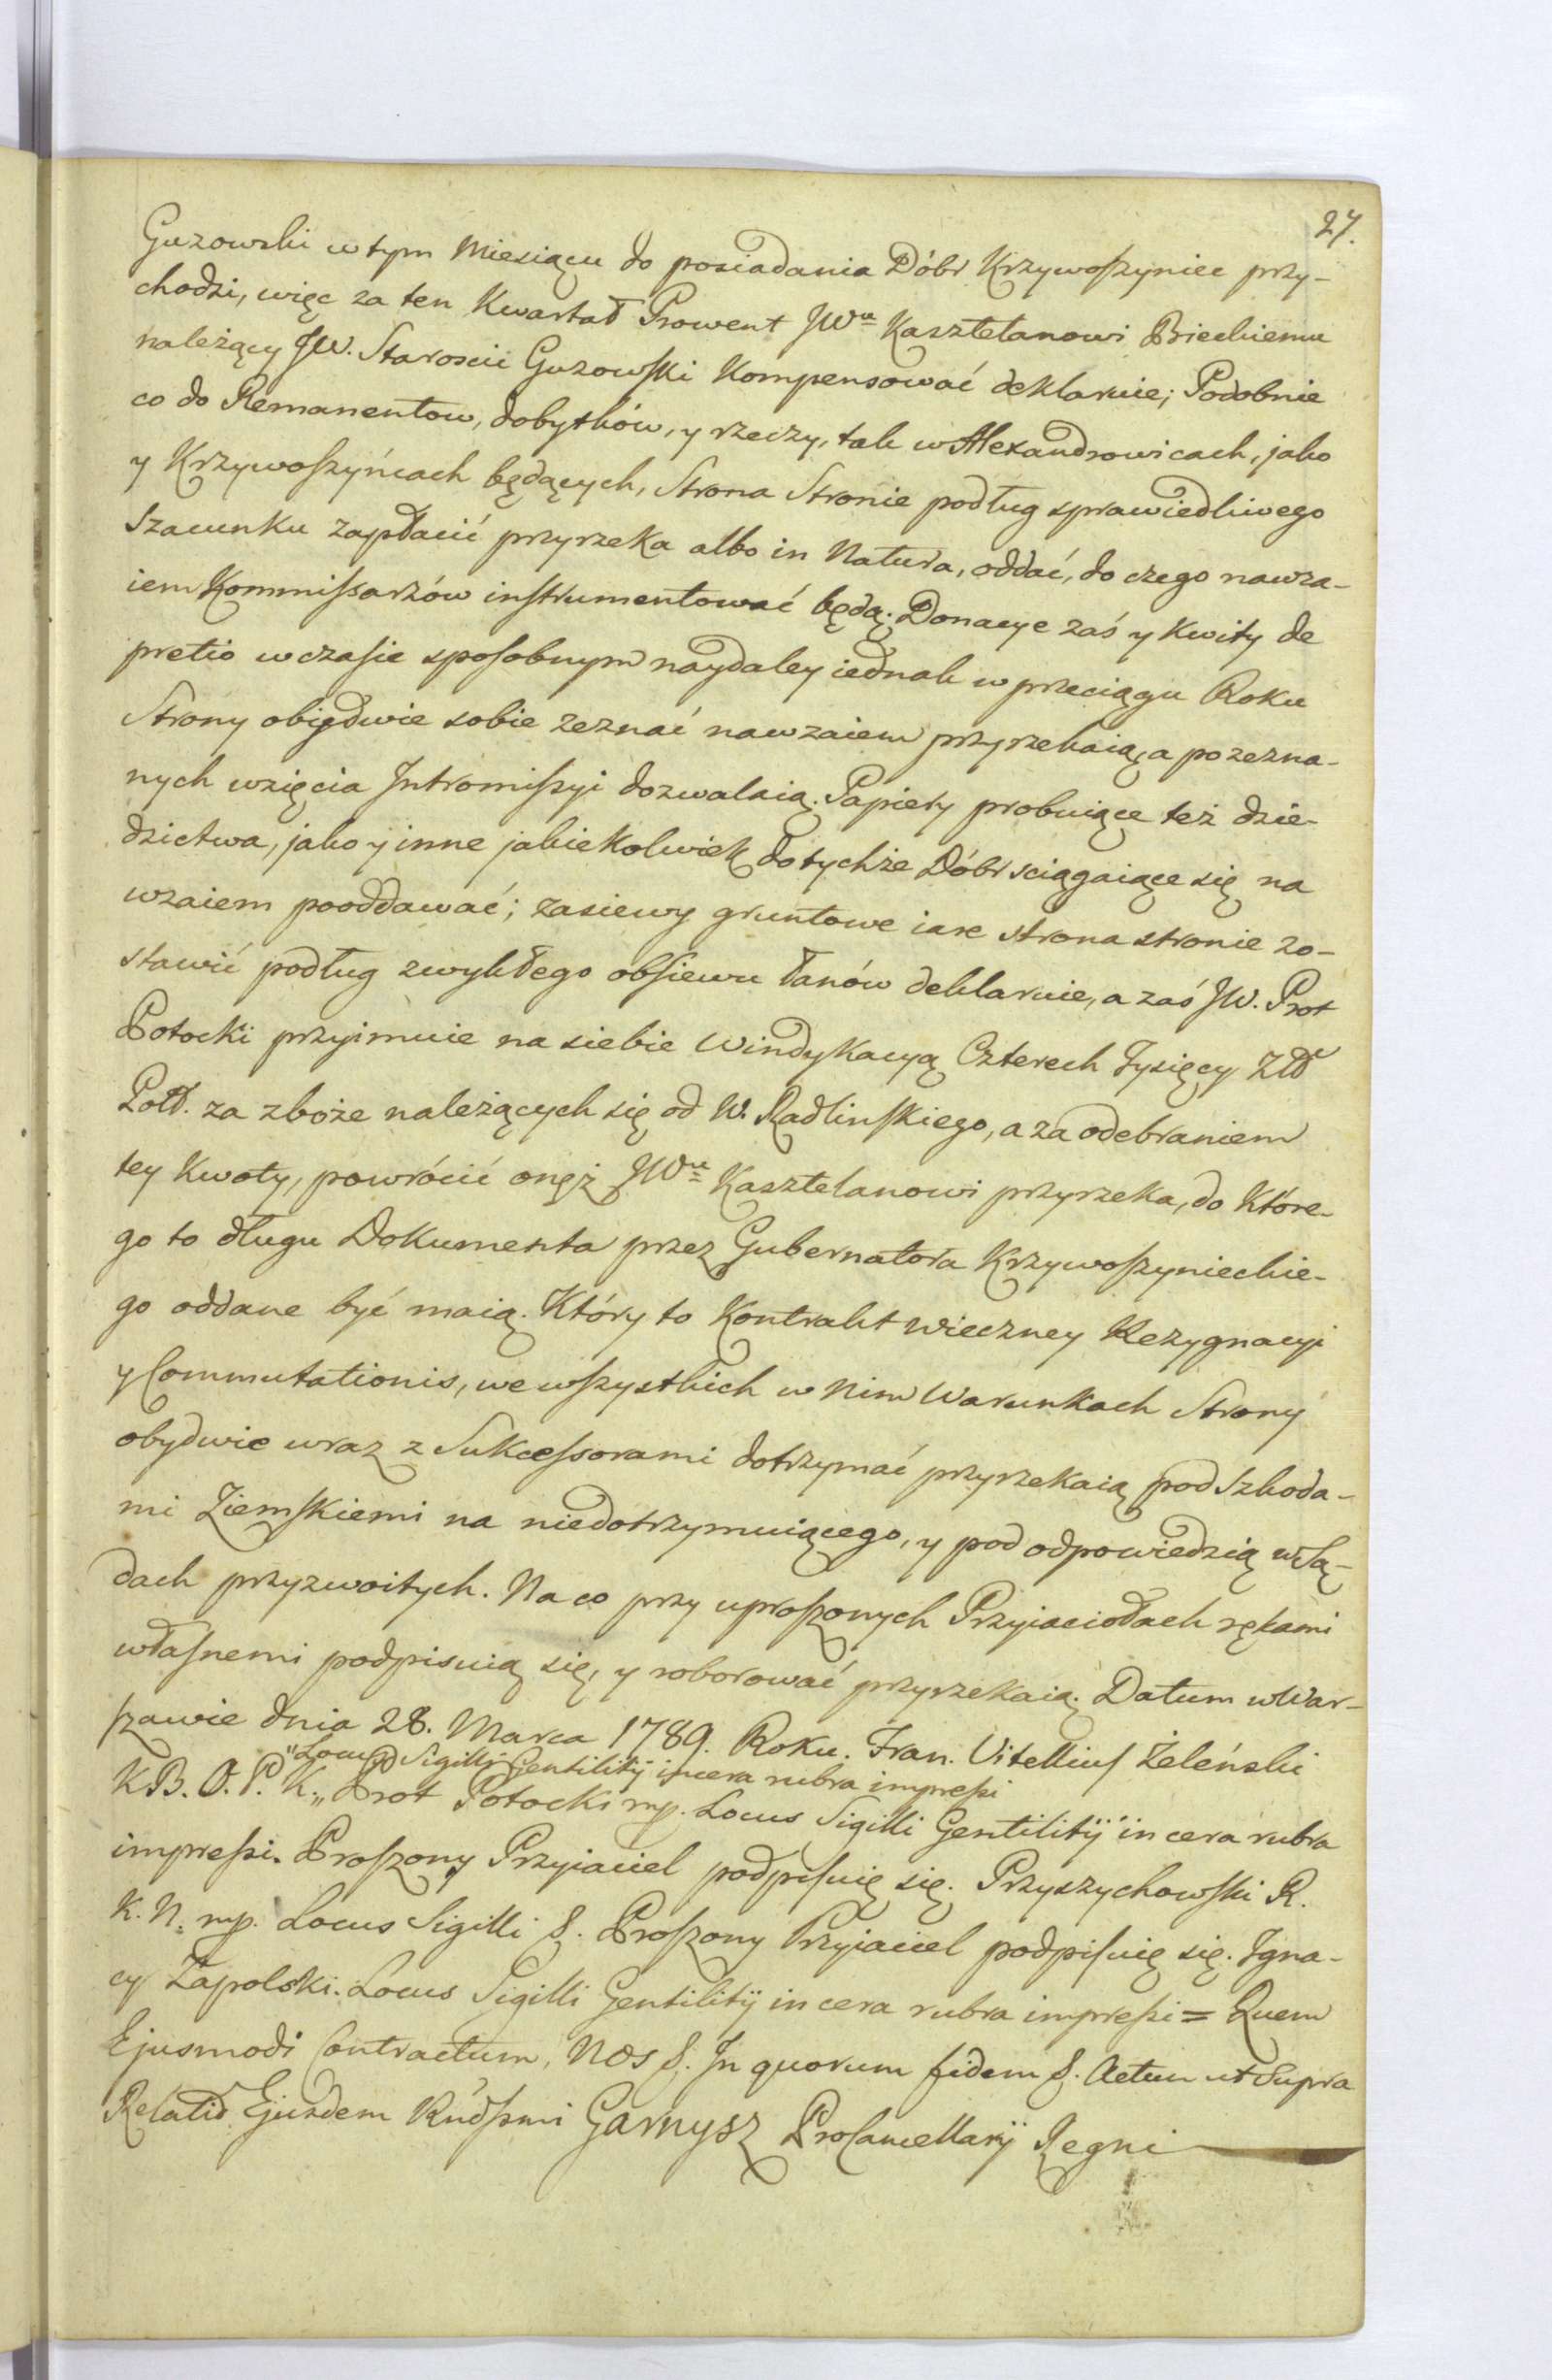 27.
Guzowski w tym Miesiącu do posiadania Dóbr Krzywoszyniec przy-
chodzi, więc za ten Kwartał Prowent JWu Kasztelanowi Bieckiemu
należący JW. Starosciі Guzowski Kompensować deklaruie; Podobnie
co do Remanentow, dobytków, y rzeczy, tak w Alexandrowicach, jako
y Krzywoszyńcach będących, Strona Stronie podług sprawiedliwego
szacunku zapłacić przyrzeka albo in Natura, oddać, do czego nawza-
iem Kommissarzów instrumentować będą. Donacye zaś y Kwity de
pretio w czasie sposobnym naydaley iednak w przeciągu Roku
Strony obiedwie sobie zeznać nawzaiem przyrzekaią, a po zezna-
nych wzięcia Intromissyi dozwalaią. Papiery probuiące też dzie-
dzictwa, jako y inne jakiekolwiek do tychże Dóbr sciągaiące się na
wzaiem pooddawać; zasiewy gruntowe iare strona stronie zo-
stawić podług zwykłego obsiewu łanów deklaruie, a zaś JW. Prot
Potocki przyimuie na siebie windykacyą Czterech Tysięcy Złł
Poll. za zboże należących się od W. Radlinskiego, a za odebraniem
tey Kwoty, powrócić onęż JWu Kasztelanowi przyrzeka, do Które-
go to długu Dokumenta przez Gubernatora Krzywoszynieckie-
go oddane być maią. Który to Kontrakt wieczney Rezygnacyi
y Commutationis, we wszystkich w Nim Warunkach Strony
obydwie wraz z Sukcessorami dotrzymać przyrzekaią pod Szkoda-
mi Ziemskiemi na niedotrzymuiącego, y pod odpowiedzią w Są-
dach przyzwoitych. Na co przy uproszonych Przyiaciołach rękami
własnemi podpisuią się, y roborować przyrzekaią. Datum w War-
szawie dnia 28. Marca 1789. Roku. Fran. Vitellius Żeleński
"Locus Sigilli Gentilitij in cera rubra impressi
K B. O. P. K.„ Prot Potocki mp. Locus Sigilli Gentilitij in cera rubra
impressi. Proszony Przyiaciel podpisuię się. Przyszychowski R.
K. N. mp. Locus Sigilli &. Proszony Przyiaciel podpisuię się. Igna-
cy Zapolski. Locus Sigilli Gentilitij in cera rubra impressi = Quem
Ejusmodi Contractum, Nos &. In quorum fidem &. Actum ut Supra
Relatio Ejusdem Rndssmi Garnysz ProCancellarij Regni